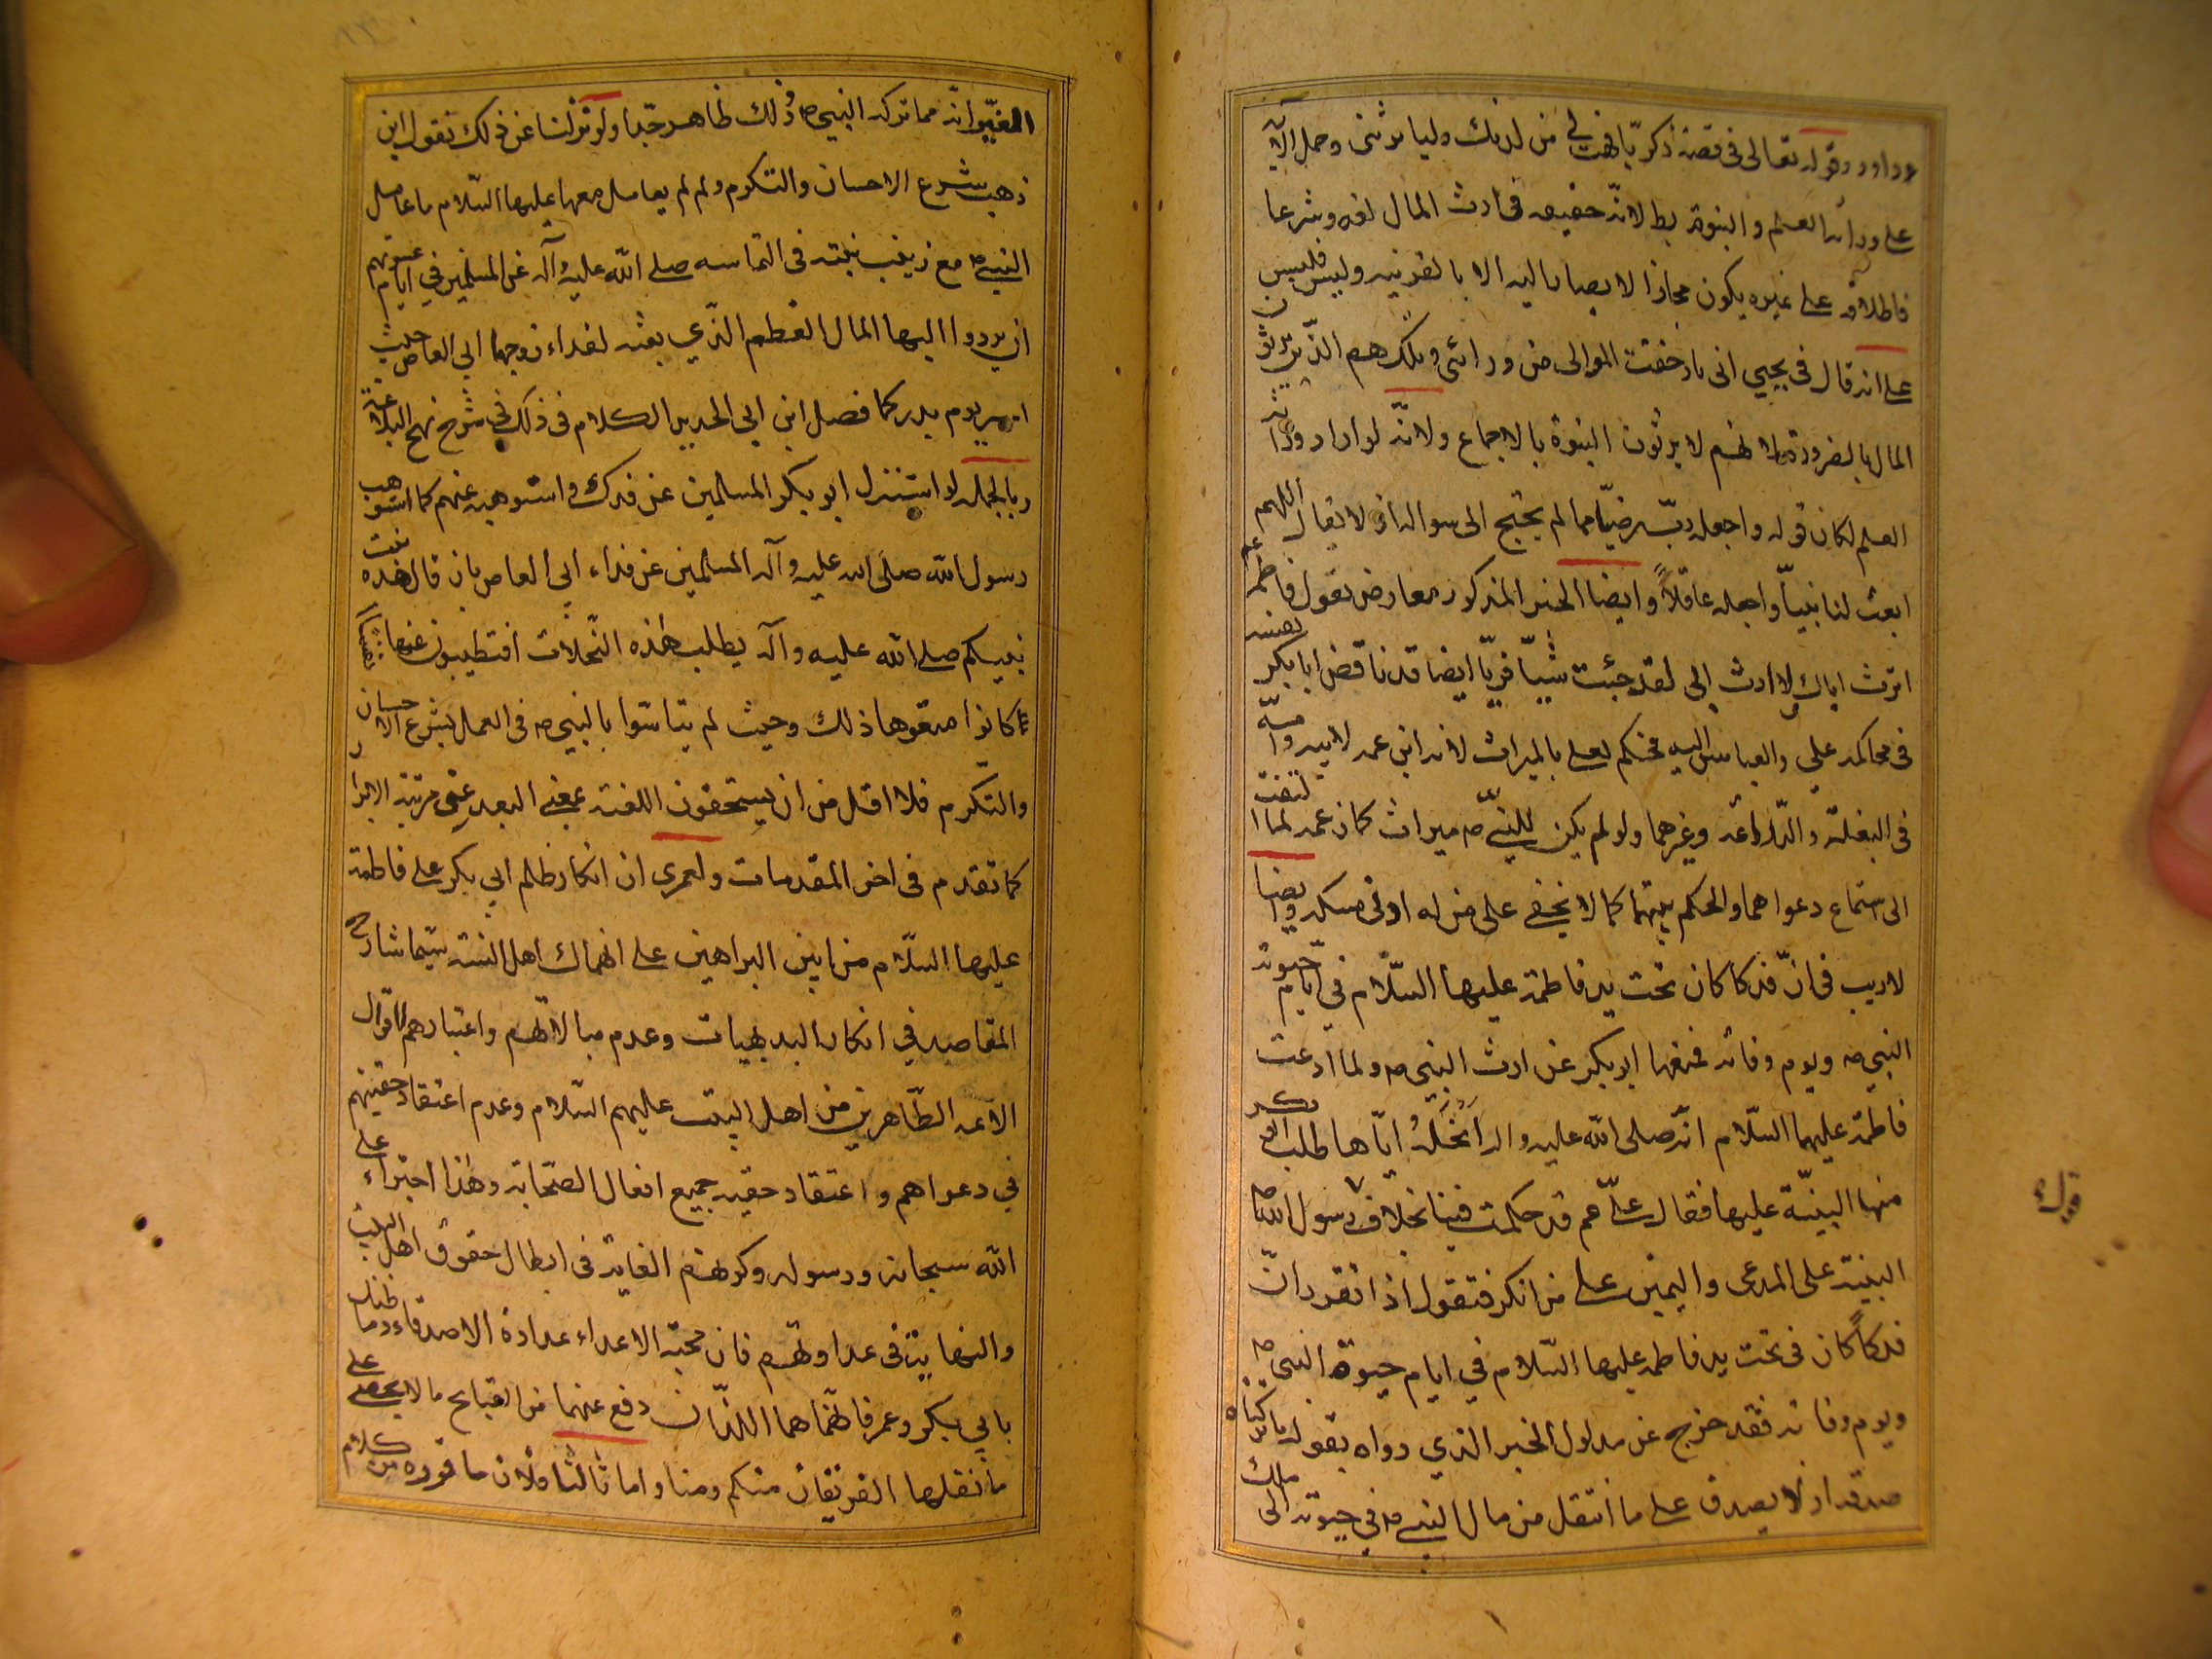 داود وقوله تعالى فى قصة زكريّا فهب لى من لدنك وليا يرثنى وحمل الآية
على وراثة العلم والنبوة بط لانّه حقيقه فى ارث المال لغه وشرعا
فاطلاقه على غيره يكون مجازا لا يصار اليه الا بالقرينه وليس فليس
على انه قال فى يحيى انى خفت الموالى من ورائى هم الذين يرثون
المال بالضرورة لانهم لا يرثون النبوة بالاجماع ولانّه لو اراد وراثة
العلم لكان قوله واجعله ربّ رضيّا مما لم يحتج الى سواله اذ لا يقال اللهم
ابعث لنا نبيّا واجعله عاقلاً وايضا الخبر المذكور معارض بقول فاطمة ع
اترث اباك ولا ارث ابى لقد جئت شيئا فريّا ايضا قد ناقض ابا بكر نفسه
فى محاكمة على والعباس اليه فحكم لعلى بالميراث لانه ابن عمه لابيه وامّه
فى البغلة والدّراعة وغيرهما ولو لم يكن للنبىّ ص ميراث كان عمه لما التفت
الى استماع دعواهما والحكم بينهما كما لا يخفى على من له ادنى مسكه وايضا
لا ريب فى انّ فدكا كان تحت يد فاطمة عليها السّلام فى ايّام حيوته
النبى ص ويوم وفاته فمنعها ابو بكر عن ارث النبى ص ولما ادعت
فاطمة عليها السّلام انّه صلى الله عليه واله انحله ايّاها طلب ابو بكر
منها البيّنة عليها فقال علىّ عم قد حكمت فينا بخلاف رسول الله ص
البينة على المدعى واليمين على من انكر فتقول اذا تقرر انّ
فدكاً كان فى تحت يد فاطمه عليها السّلام فى ايام حيوة النبى ص
ويوم وفاته فقد خرج عن مدلول الخبر الذى رواه بقوله ما تركناه
صدقه اذ لا يصدق على ما انتقل من مال النبى ص فى حيوته الى ملك
قوله
الغير انّه مما تركه النبى ص وذلك ظاهر جدّا ولو تنزلنا عن ذلك نقول اين
ذهب شرع الاحسان والتكرم ولم لم يعامل معها عليها السّلام ما عامل
النبى ص مع زينب بنته فى التماسه صلى الله عليه وآله عن المسلمين فى ايام عسرتهم
ان يردوا اليها المال العظيم الّذي بعثه لفداء زوجها ابى العاص حيث
اسر يوم بدر كما فصل ابن ابى الحديد الكلام فى ذلك فى شرح نهج البلاغة
وبالجمله لو استنزل ابو بكر المسلمين عن فدك واستوهبه عنهم كما استوهب
رسول الله صلى الله عليه وآله المسلمين عن فداء ابى العاص بان قال هذه بنت
نبيكم صلى الله عليه وآله يطلب هذه النّخلات افتطيبون عنها نفسا
كانوا منعوها ذلك وحيث لم يتاسّوا بالنبى ص فى العمل بشرع الاحسان
والتّكرم فلا اقل من ان يستحقون اللعنة بمعنى البعد عن مرتبة الابرار
كما تقدم فى اخر المقدمات ولعمرى ان انكار ظلم ابى بكر على فاطمة
عليها السّلام من ابين البراهين على انهماك اهل السنة سيّما شارح
المقاصد في انكار البديهيات وعدم مبالاتهم واعتبارهم لاقوال
الائمه الطّاهرين من اهل البيت عليهم السّلام وعدم اعتقاد حقيتهم
في دعواهم واعتقاد حقيه جميع افعال الصّحابة وهذا اجتراء على
الله سبحانه ورسوله وكونهم الغاية فى ابطال حقوق اهل البيت
والنهاية فى عداوتهم فان محبة الاعداء عداوة الاصدقاء وما ظنك
بابي بكر وعمر فانهما هما اللذان دفع عنهما من القبايح ما لا يحصى على
ما نقلها الفريقان منكم ومنا واما ثالثا فلان ما قرره من كلام